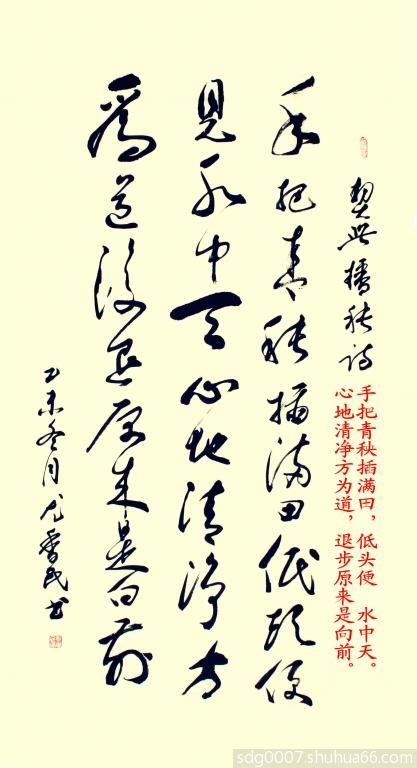 契此播秧诗
手把青秧插满田,低头便 水中天。
心地清净方为道,退步原来是向前。
手把青秧插满田低头便
見水中天心地清净方
為道後退原来是向前
乙未冬月 书
sdg0007.shuhua66.com